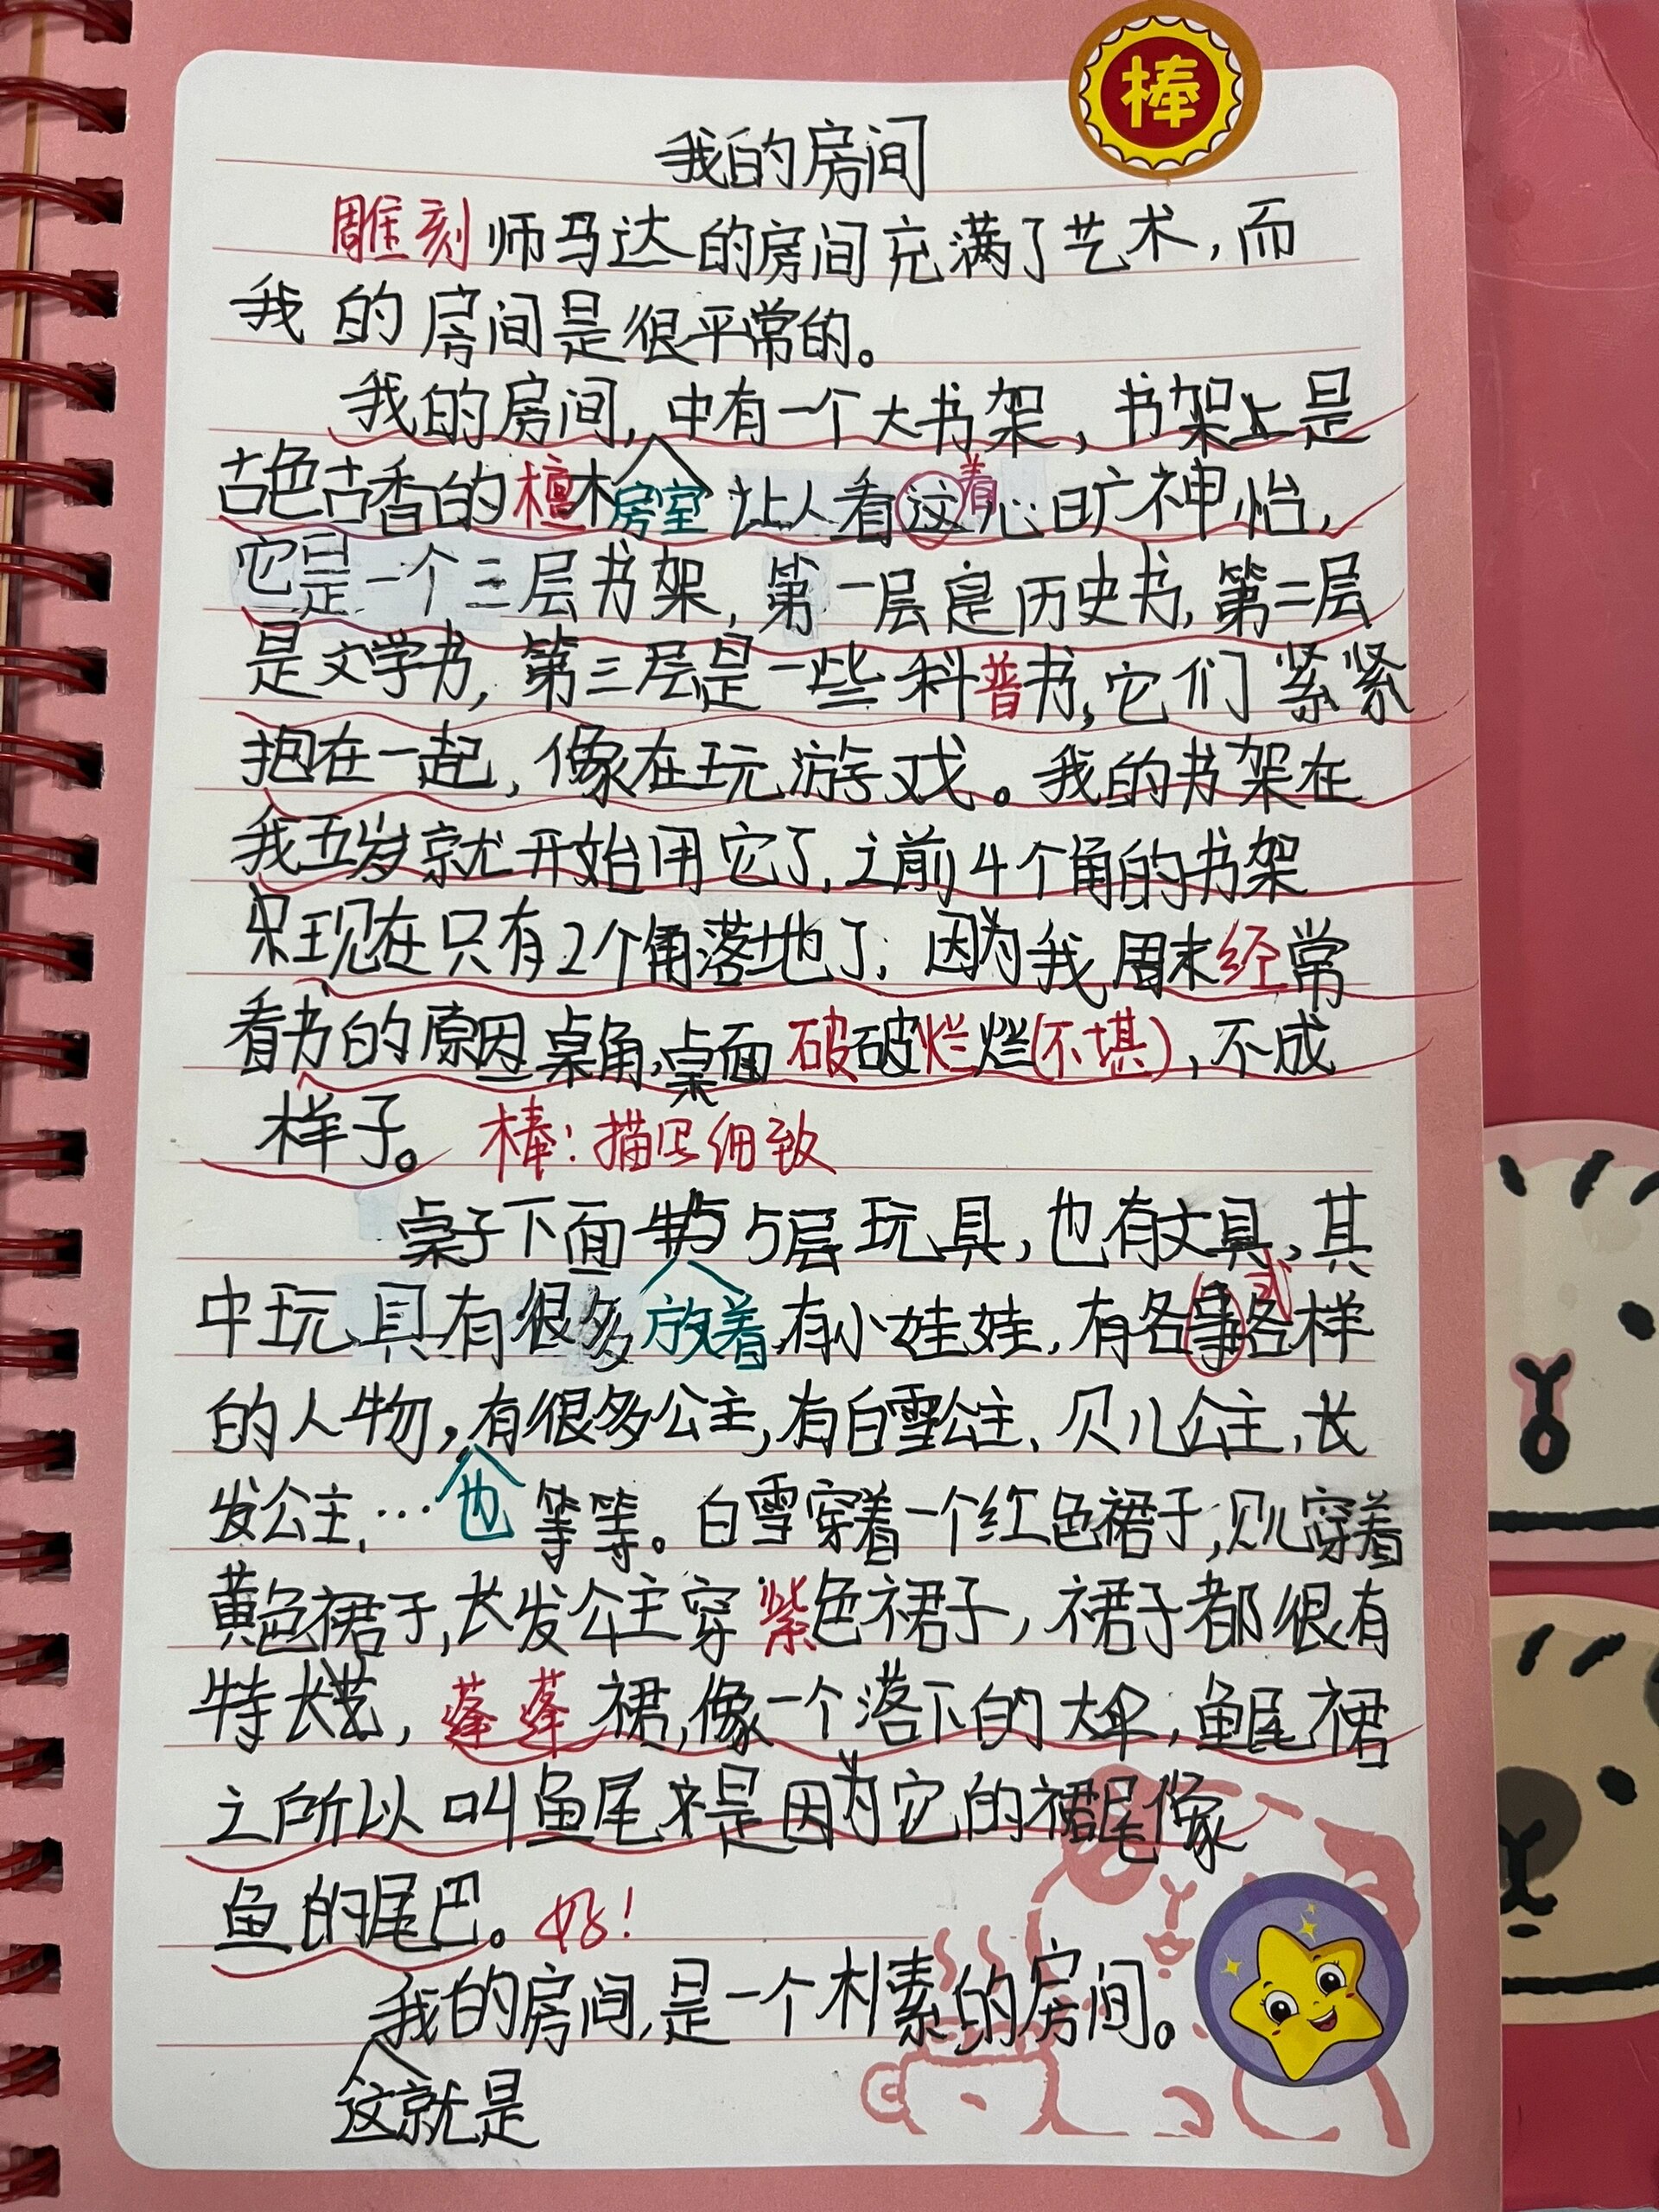 棒
我的房间
雕刻师马达的房间充满了艺术，而
我的房间是很平常的。
我的房间，中有一个大书架，书架上是
古色古香的檀木房室让人看这着心旷神怡，
它是一个三层书架，第一层是历史书，第二层
是文学书，第三层是一些科普书，它们紧紧
抱在一起，像在玩游戏。我的书架在
我五岁就开始用它了，之前4个角的书架
现在只有2个角落地了，因为我周末经常
看书的原因桌角，桌面破破烂烂(不堪)，不成
样子。棒：描写细致
桌子下面 5层玩具，也有文具，其
中玩具有很多放着，有小娃娃，有各事式各样
的人物，有很多公主，有白雪公主、贝儿公主，长
发公主，…也等等。白雪穿着一个红色裙子，贝儿穿着
黄色裙子，长发公主穿紫色裙子，裙子都很有
特长，蓬蓬裙，像一个落下的大伞，鱼尾裙
之所以叫鱼尾是因为它的裙尾像
鱼的尾巴。好！
我的房间，是一个朴素的房间。
这就是